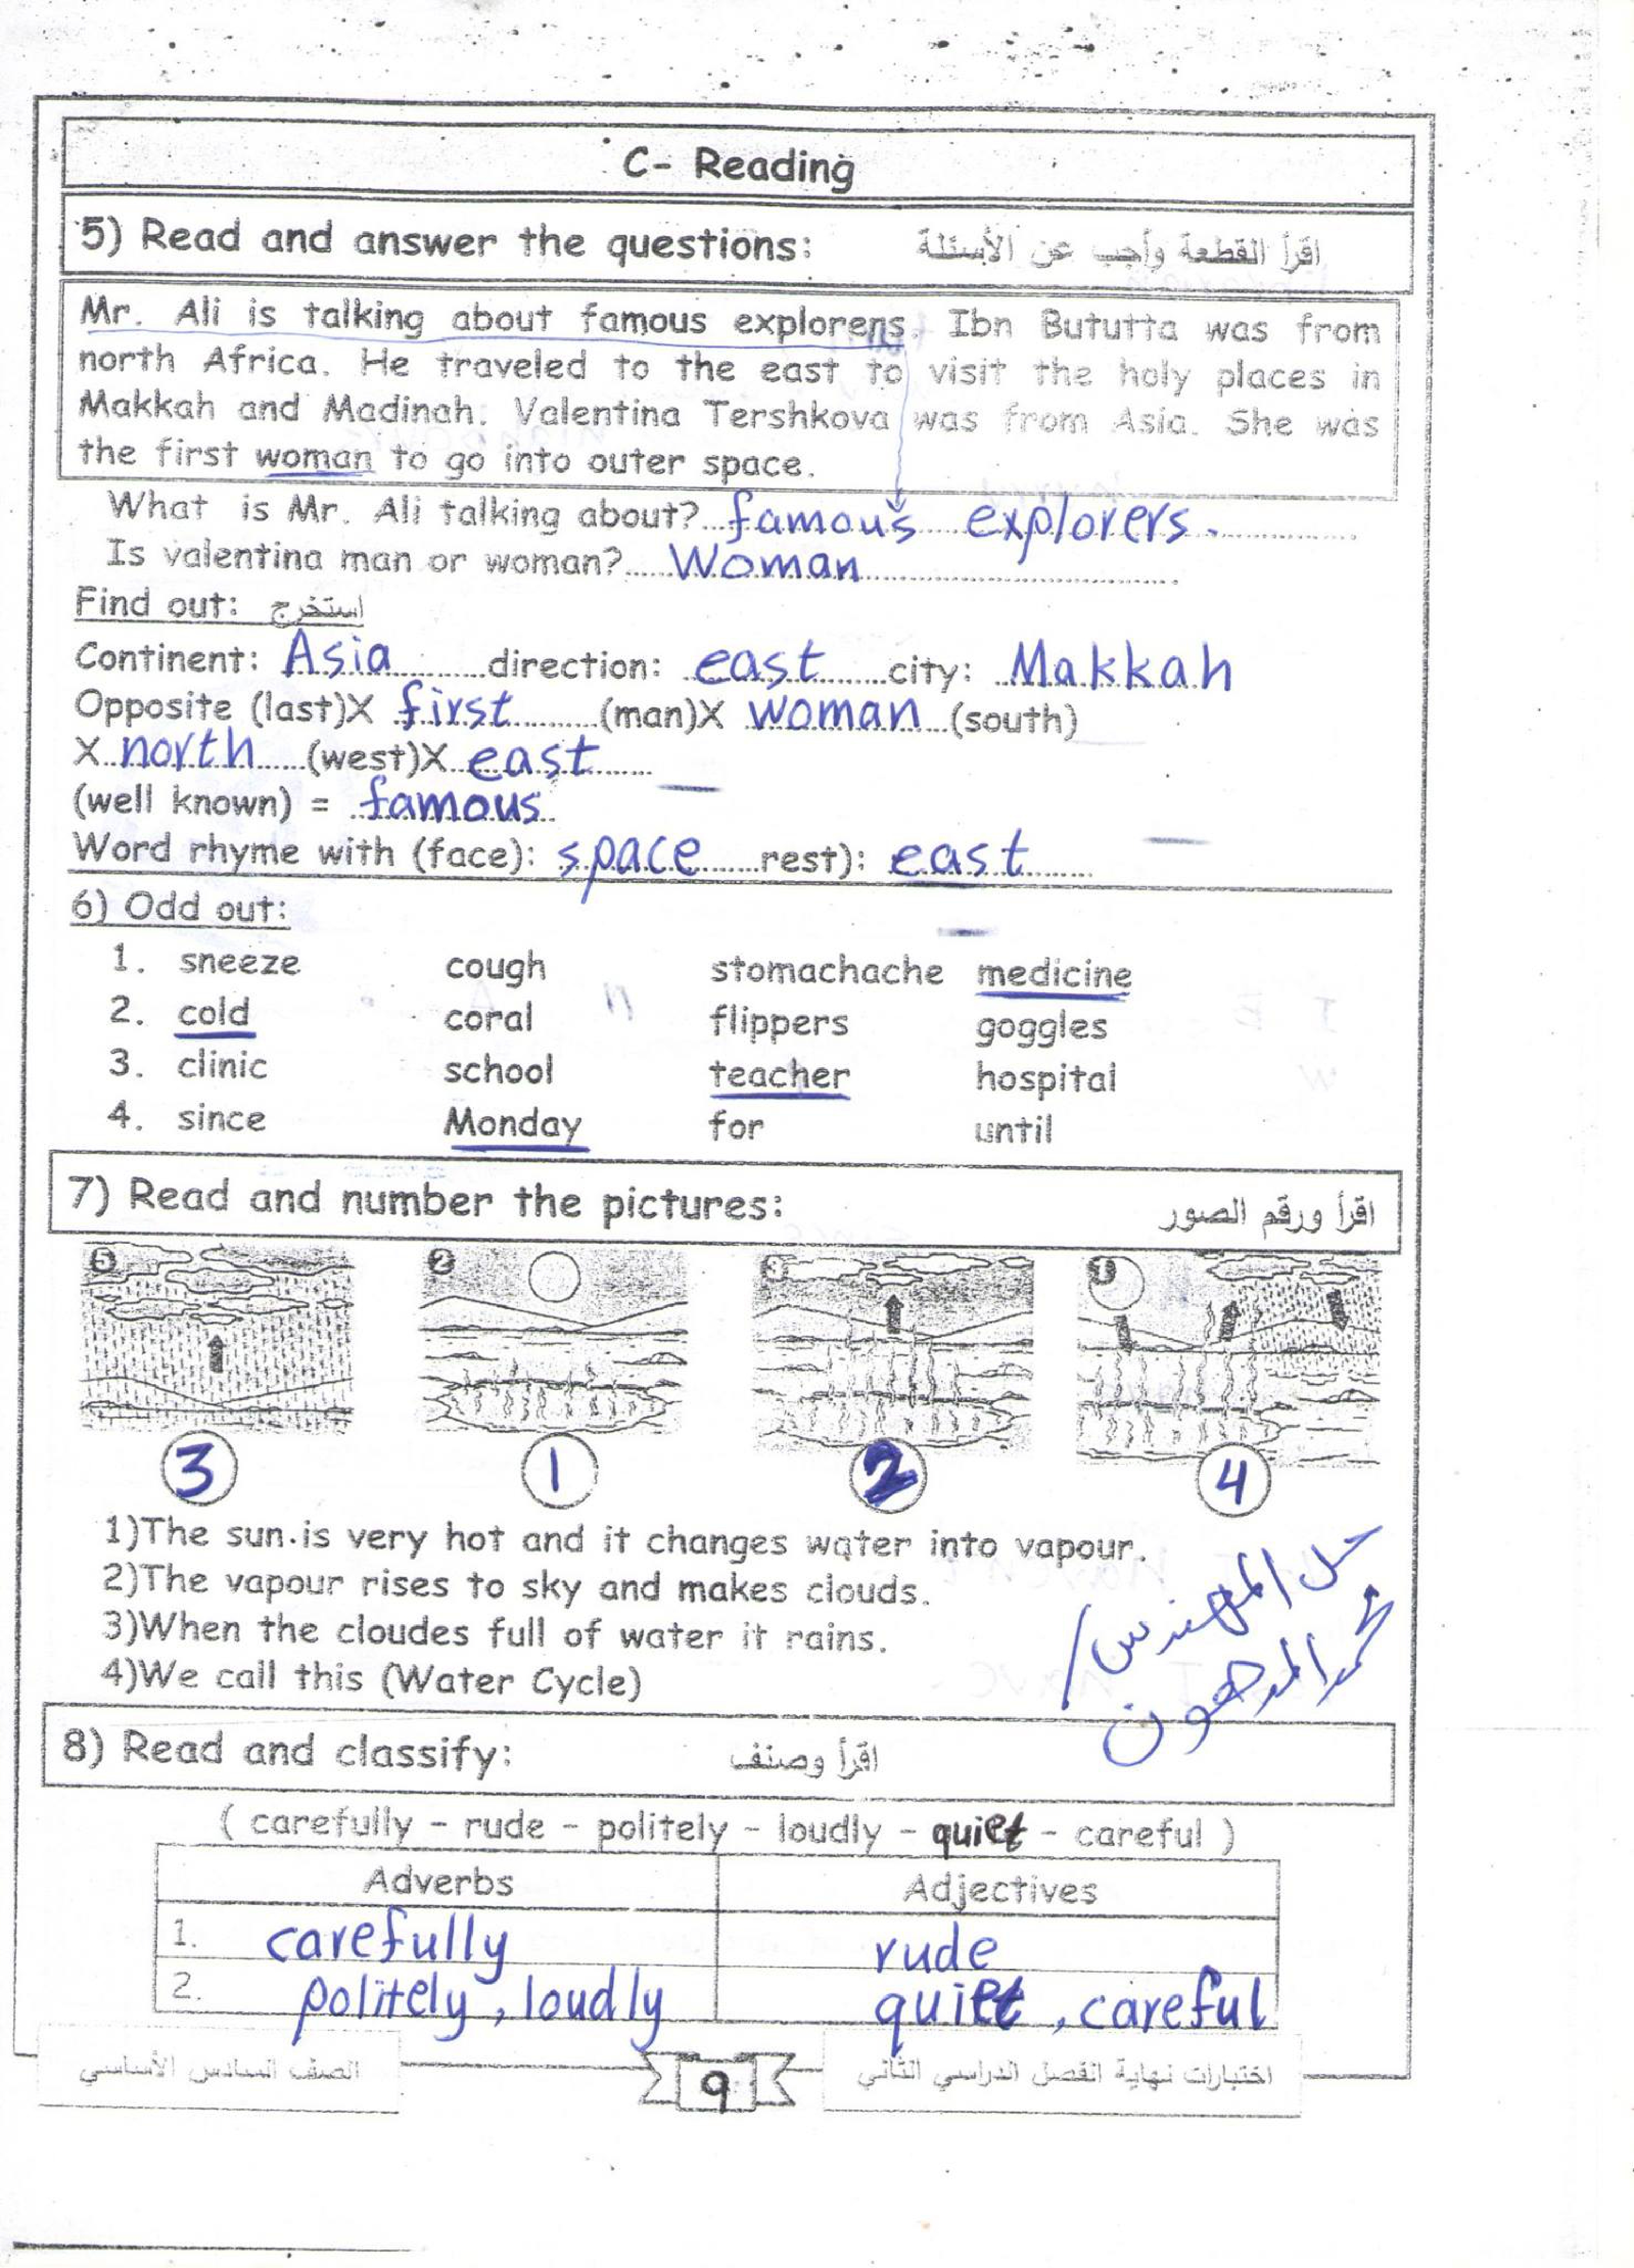 C- Reading
5) Read and answer the questions: اقرأ القطعة وأجب عن الأسئلة
Mr. Ali is talking about famous explorers. Ibn Bututta was from
north Africa. He traveled to the east to visit the holy places in
Makkah and Madinah. Valentina Tershkova was from Asia. She was
the first woman to go into outer space.
What is Mr. Ali talking about? famous explorers.
Is valentina man or woman? Woman
Find out: استخرج
Continent: Asia direction: east city: Makkah
Opposite (last)X first (man)X woman (south)
X north (west)X east
(well known) = famous
Word rhyme with (face): space rest): east
6) Odd out:
1. sneeze cough stomachache medicine
2. cold coral flippers goggles
3. clinic school teacher hospital
4. since Monday for until
7) Read and number the pictures: اقرأ ورقم الصور
5 2 3 1
3 1 2 4
1)The sun is very hot and it changes water into vapour.
2)The vapour rises to sky and makes clouds.
3)When the cloudes full of water it rains.
4)We call this (Water Cycle)
حل المهندس/
محمد المدهون
8) Read and classify: اقرأ وصنف
( carefully - rude - politely - loudly - quiet - careful )
Adverbs Adjectives
1. carefully rude
2. politely, loudly quiet, careful
الصف السادس الأساسي 9 اختبارات نهاية الفصل الدراسي الثاني